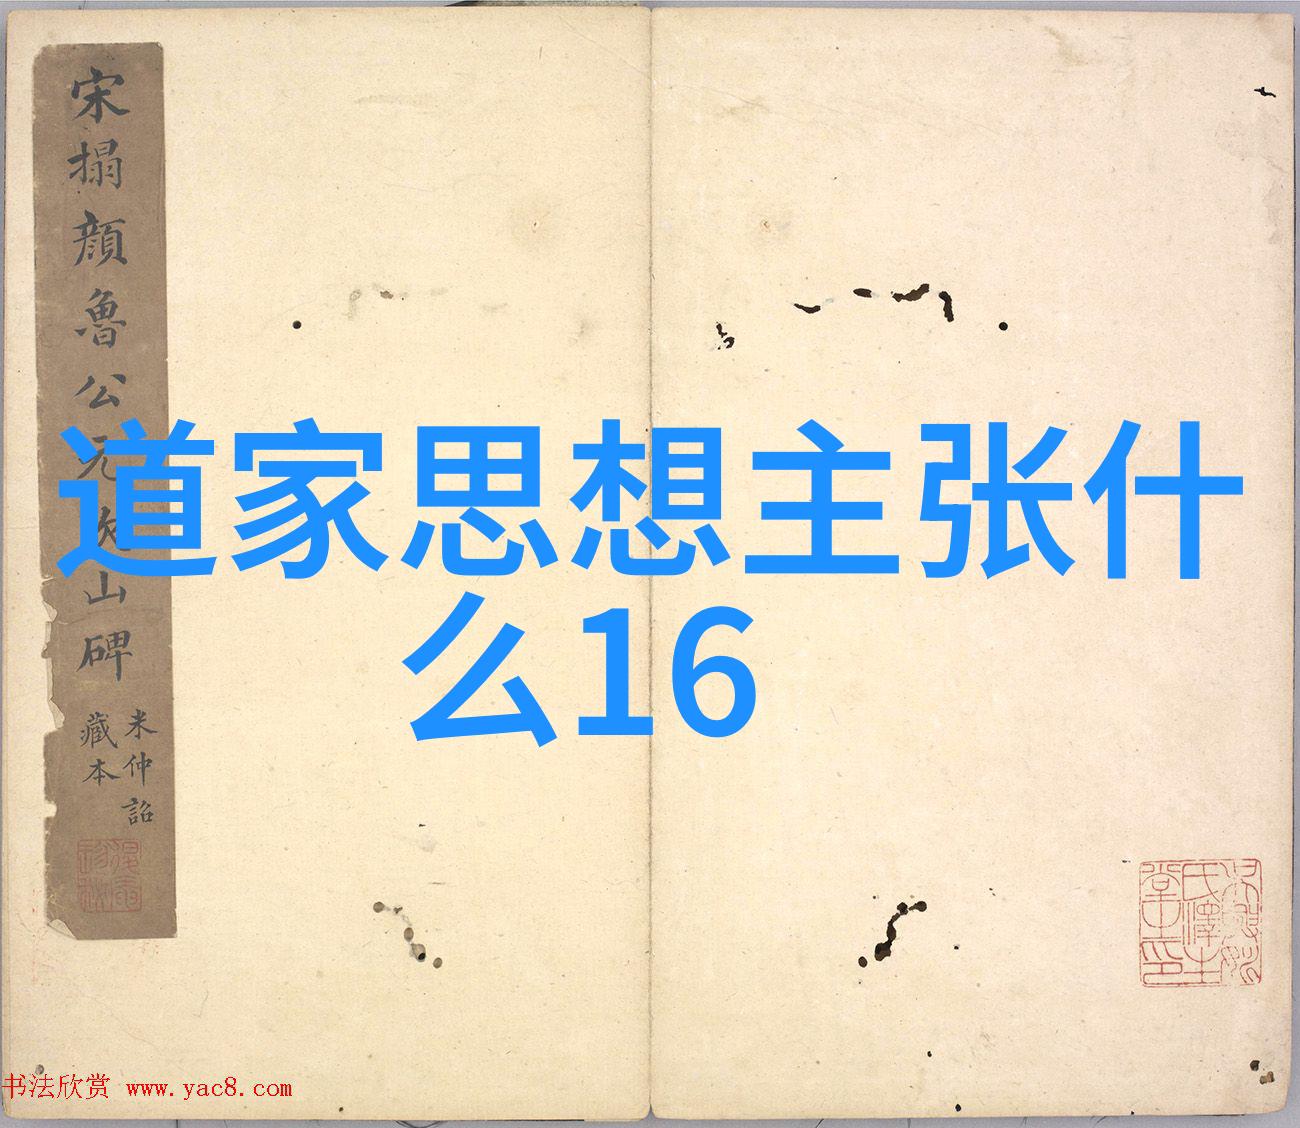 宋搨顔魯公元次山碑
米仲詔
藏本
道家思想主张什
么16
书法欣赏 www.yac8.com